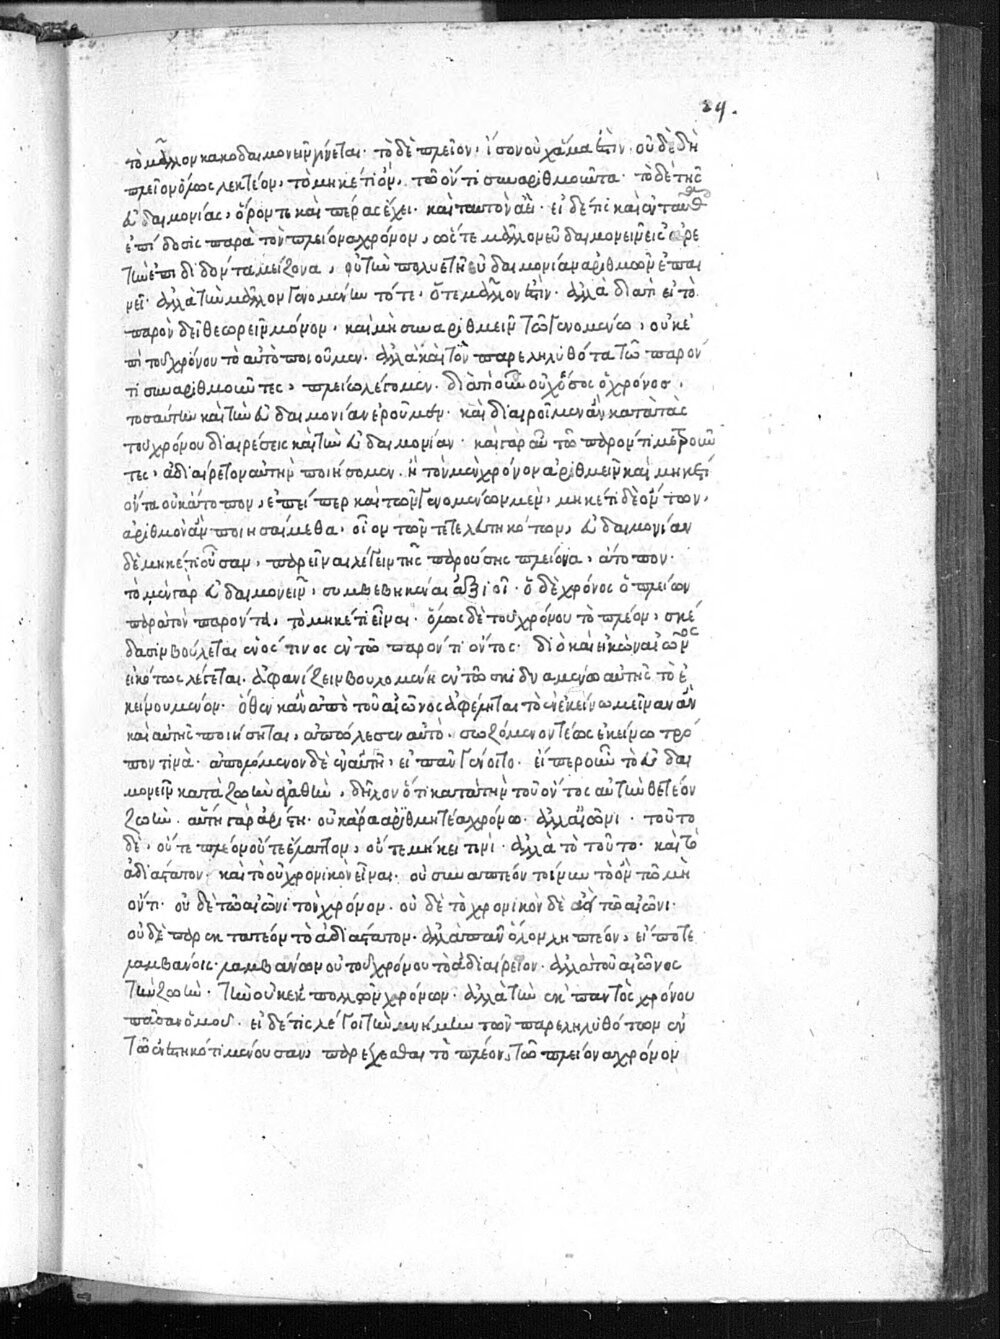 24.
τὸ μᾶλλον κακοδαιμονεῖν γίνεται. τὸ δὲ πλεῖον, ἴσον οὐχ ἅμα ἐστίν. οὐδὲ δὴ
πλεῖον ὅλως λεκτέον, τὸ μηκέτι ὄν, τῶ ὄντι συναριθμοῦντα. τὸ δὲ τῆς
εὐδαιμονίας, ὅρον τε καὶ πέρας ἔχει. καὶ ταυτὸν ἀεί. εἰ δέ τις καὶ ἐνταῦθα
ἐπίδοσις παρὰ τὸν πλείονα χρόνον, ὥστε μᾶλλον εὐδαιμονεῖν εἰς ἀρε
τὴν ἐπιδιδόντα μείζονα, οὐ τὴν πολυετῆ εὐδαιμονίαν ἀριθμῶν ἐπαι
νεῖ. ἀλλὰ τὴν μᾶλλον γενομένην τότε, ὅτε μᾶλλον ἐστίν. ἀλλὰ διατί εἰ τὸ
παρὸν δεῖ θεωρεῖν μόνον, καὶ μὴ συναριθμεῖν τῶ γενομένω, οὐκἐ
πὶ τοῦ χρόνου τὸ αὐτὸ ποιοῦμεν. ἀλλὰ καὶ τὸν παρεληλυθότα τῶ παρόν
τι συναριθμοῦντες, πλείω λέγομεν. διατί οὖν οὐχ ὅσος ὁ χρόνος,
τοσαύτην καὶ τὴν εὐδαιμονίαν ἐροῦμεν. καὶ διαιροῖμεν ἂν κατὰ τὰς
τοῦ χρόνου διαιρέσεις καὶ τὴν εὐδαιμονίαν. καὶ γὰρ αὖ τῶ παρόντι μετροῦν
τες, ἀδιαίρετον αὐτὴν ποιήσομεν. ἢ τὸν μὲν χρόνον ἀριθμεῖν καὶ μηκέτι
ὄντα οὐκ ἄτοπον, ἐπείπερ καὶ τῶν γενομένων μὲν, μηκέτι δὲ ὄντων,
ἀριθμὸν ἂν ποιησαίμεθα. οἷον τῶν τετελευτηκότων, εὐδαιμονίαν
δὲ μηκέτι οὖσαν, παρεῖναι λέγειν τῆς παρούσης πλείονα, ἄτοπον.
τὸ μὲν γὰρ εὐδαιμονεῖν, συμβεβηκέναι ἀξιοῖ. ὁ δὲ χρόνος ὁ πλείων
παρὰ τὸν παρόντα, τὸ μηκέτι εἶναι. ὅλως δὲ τοῦ χρόνου τὸ πλέον, σκέ
δασιν βούλεται ἑνός τινος ἐν τῶ παρόντι ὄντος. διὸ καὶ εἰκὼν αἰῶνος
εἰκότως λέγεται. ἀφανίζειν βουλομένη ἐν τῶ σκιδναμένω αὐτῆς τὸ ἐ
κείνου μένον. ὅθεν κἂν ἀπὸ τοῦ αἰῶνος ἀφέληται τὸ ἐν ἐκείνω μεῖναν ἂν
καὶ αὐτῆς ποιήσηται, ἀπώλεσεν αὐτό. σωζόμενον τέως ἐκείνω τρό
πον τινὰ. ἀπολόμενον δὲ ἐν αὐτῆ, εἰ πᾶν γένοιτο. εἴπερ οὖν τὸ εὐδαι
μονεῖν κατὰ ζωὴν ἀγαθὴν, δῆλον ὅτι κατὰ τὴν τοῦ ὄντος αὐτὴν θετέον
ζωήν. αὕτη γὰρ ἀρίστη. οὐκ ἄρα ἀριθμητέα χρόνω. ἀλλ' αἰῶνι. τοῦτο
δὲ, οὔτε πλέον οὔτε ἔλαττον, οὔτε μήκει τινί. ἀλλὰ τὸ τοῦτο. καὶ τὸ
ἀδιάστατον. καὶ τὸ οὐ χρονικὸν εἶναι. οὐ συναπτέον τοίνυν τὸ ὂν τῶ μὴ
ὄντι. οὐδὲ τῶ αἰῶνι τὸν χρόνον. οὐδὲ τὸ χρονικὸν δὲ ἀεὶ τῶ αἰῶνι.
οὐδὲ παρεκτατέον τὸ ἀδιάστατον. ἀλλὰ πᾶν ὅλον ληπτέον, εἴποτε
λαμβάνοις. λαμβάνων οὐ τοῦ χρόνου τὸ ἀδιαίρετον. ἀλλὰ τοῦ αἰῶνος
τὴν ζωήν. τὴν οὐκ ἐκ πολλῶν χρόνων. ἀλλὰ τὴν ἐκ παντὸς χρόνου
πᾶσαν ὁμοῦ. εἰ δέ τις λέγοι τὴν μνήμην τῶν παρεληλυθότων ἐν
τῶ ἐνεστηκότι μένουσαν, παρέχεσθαι τὸ πλέον, τῶ πλείονα χρόνον